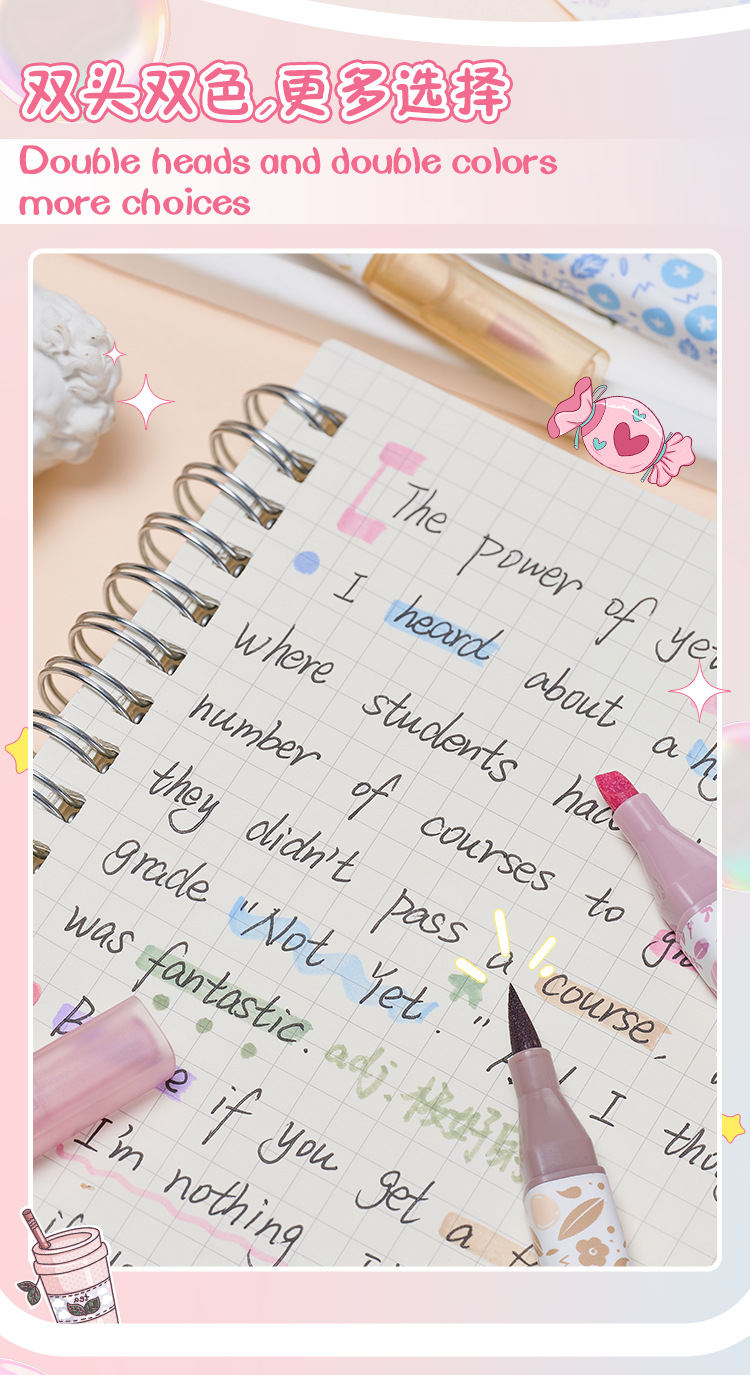 双头双色,更多选择
Double heads and double colors
more choices
The power of yet
I heard about a
where students had
number of courses to
they didn't pass a course,
grade "Not Yet." I
was fantastic. adj.
if you get a
I'm nothing